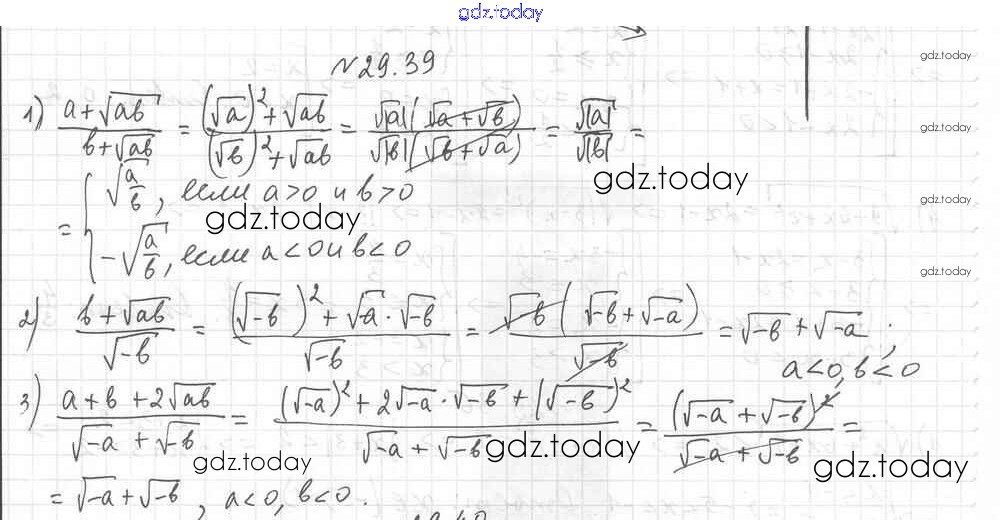 gdz.today
№29.39
gdz.today
1) (a+√ab)/(b+√ab) = ((√a)²+√ab)/((√b)²+√ab) = (√|a|(√a+√b))/(√|b|(√b+√a)) = √|a|/√|b| =
gdz.today
gdz.today
= { √(a/b), если a>0 и b>0
gdz.today
gdz.today
-√(a/b), если a<0 и b<0
gdz.today
2) (b+√ab)/√-b = ((√-b)²+√-a·√-b)/√-b = (√-b(√-b+√-a))/√-b = √-b+√-a;
a<0, b<0
3) (a+b+2√ab)/(√-a+√-b) = ((√-a)²+2√-a·√-b+(√-b)²)/(√-a+√-b) = (√-a+√-b)²/(√-a+√-b) =
gdz.today
gdz.today
gdz.today
= √-a+√-b, a<0, b<0.